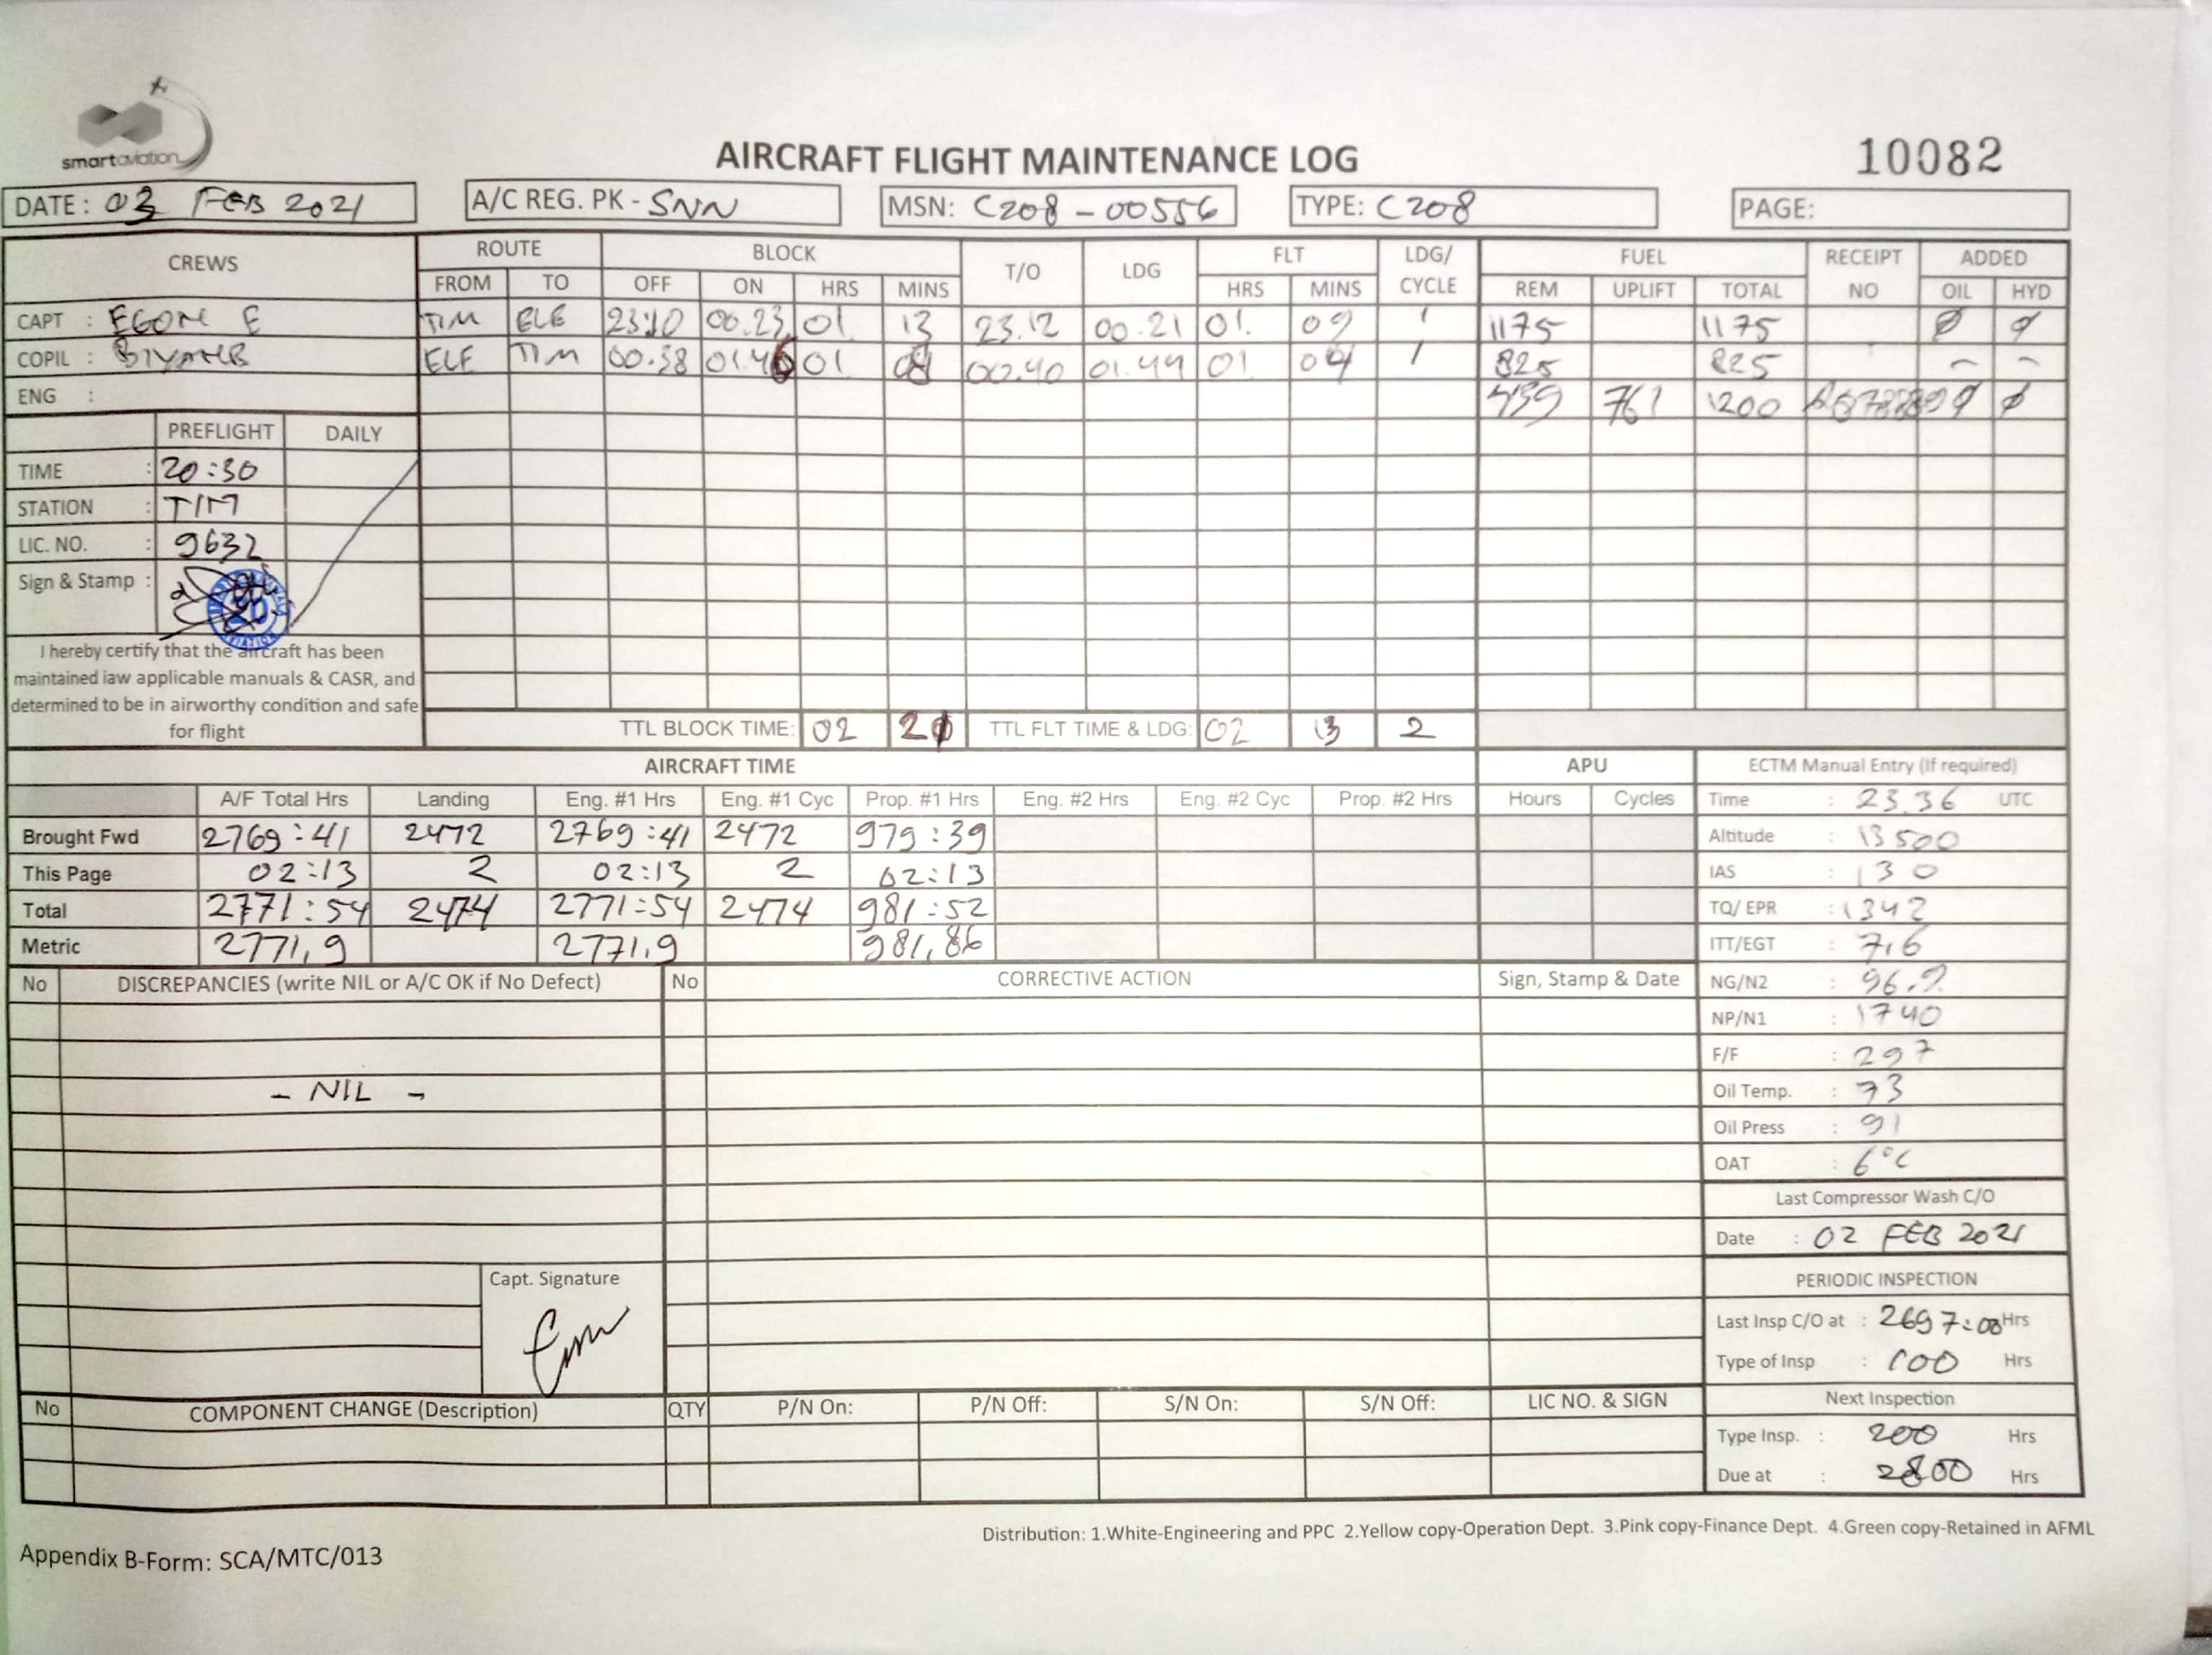 smartaviation
AIRCRAFT FLIGHT MAINTENANCE LOG
10082
DATE: 03 FEB 2021
A/C REG. PK - SNN
MSN: C208-00556
TYPE: C208
PAGE:
CREWS ROUTE BLOCK T/O LDG FLT LDG/ CYCLE FUEL RECEIPT NO ADDED
FROM TO OFF ON HRS MINS HRS MINS REM UPLIFT TOTAL OIL HYD
CAPT : EGON E TIM ELE 23.10 00.23 01 13 23.12 00.21 01. 09 1 1175 1175 Ø Ø
COPIL : ELE TIM 00.38 01.46 01 08 00.40 01.44 01. 04 1 825 825 - -
ENG : 439 761 1200 Ø Ø
PREFLIGHT DAILY
TIME : 20:30
STATION : TIM
LIC. NO. : 9632
Sign & Stamp :
AVIATION
I hereby certify that the aircraft has been
maintained iaw applicable manuals & CASR, and
determined to be in airworthy condition and safe
for flight
TTL BLOCK TIME: 02 21 TTL FLT TIME & LDG: 02 13 2
AIRCRAFT TIME APU
A/F Total Hrs Landing Eng. #1 Hrs Eng. #1 Cyc Prop. #1 Hrs Eng. #2 Hrs Eng. #2 Cyc Prop. #2 Hrs Hours Cycles
Brought Fwd 2769:41 2472 2769:41 2472 979:39
This Page 02:13 2 02:13 2 02:13
Total 2771:54 2474 2771:54 2474 981:52
Metric 2771,9 2771,9 981,86
ECTM Manual Entry (If required)
Time : 23.36 UTC
Altitude : 13500
IAS : 130
TQ/ EPR : 1342
ITT/EGT : 7,6
NG/N2 : 96.2
NP/N1 : 1740
F/F : 297
Oil Temp. : 73
Oil Press : 91
OAT : 6°C
Last Compressor Wash C/O
Date : 02 FEB 2021
PERIODIC INSPECTION
Last Insp C/O at : 2697:00 Hrs
Type of Insp : 100 Hrs
Next Inspection
Type Insp. : 200 Hrs
Due at : 2800 Hrs
No DISCREPANCIES (write NIL or A/C OK if No Defect) No CORRECTIVE ACTION Sign, Stamp & Date
- NIL -
Capt. Signature
No COMPONENT CHANGE (Description) QTY P/N On: P/N Off: S/N On: S/N Off: LIC NO. & SIGN
Distribution: 1.White-Engineering and PPC 2.Yellow copy-Operation Dept. 3.Pink copy-Finance Dept. 4.Green copy-Retained in AFML
Appendix B-Form: SCA/MTC/013